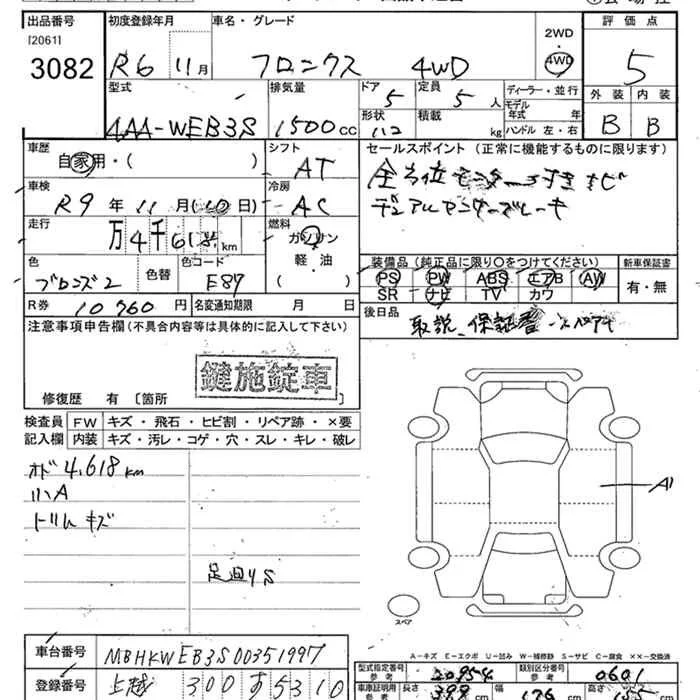 出品番号 初度登録年月 車名・グレード 2WD 評価点
[2061] 4WD
3082 R6 11月 フロンクス 4WD 5
型式 排気量 ドア 定員 ディーラー・並行 外装 内装
4AA-WEB3S 1500cc 5 5人 モデル年式 年式 B B
形状 積載 kg ハンドル 左・右
車歴 シフト セールスポイント(正常に機能するものに限ります)
自家用・( ) AT 全方位モニター付きナビ
車検 冷房 デュアルセンサーブレーキ
R9年11月(10日) AC
走行 燃料
万4千618km ガソリン
軽・油
( )
色 色替 色コード 装備品(純正品に限り○をつけてください) 新車保証書
ブロンズ2 E87 PS PW ABS エアB AW 有・無
SR ナビ TV カワ
R券 10960円 名変通知期限 月 日 後日品
取説、保証書・スペアキー
注意事項申告欄(不具合内容等は具体的に記入して下さい)
鍵施錠車
修復歴 有〔箇所
検査員 FW キズ・飛石・ヒビ割・リペア跡・×要
記入欄 内装 キズ・汚レ・コゲ・穴・スレ・キレ・破レ
オド4,618km
リハA
トリムキズ
足回りS
A1
スペア
A-キズ E-エクボ U-凹み W-補修跡 S-サビ C-腐食 ××-交換済
車台番号 MBHKWEB3S00351997
登録番号 上越 300 す 5310
型式指定番号 参考 20954 類別区分番号 参考 0601
車庫証明用 参考 長さ 399 cm 幅 176 cm 高さ 155 cm